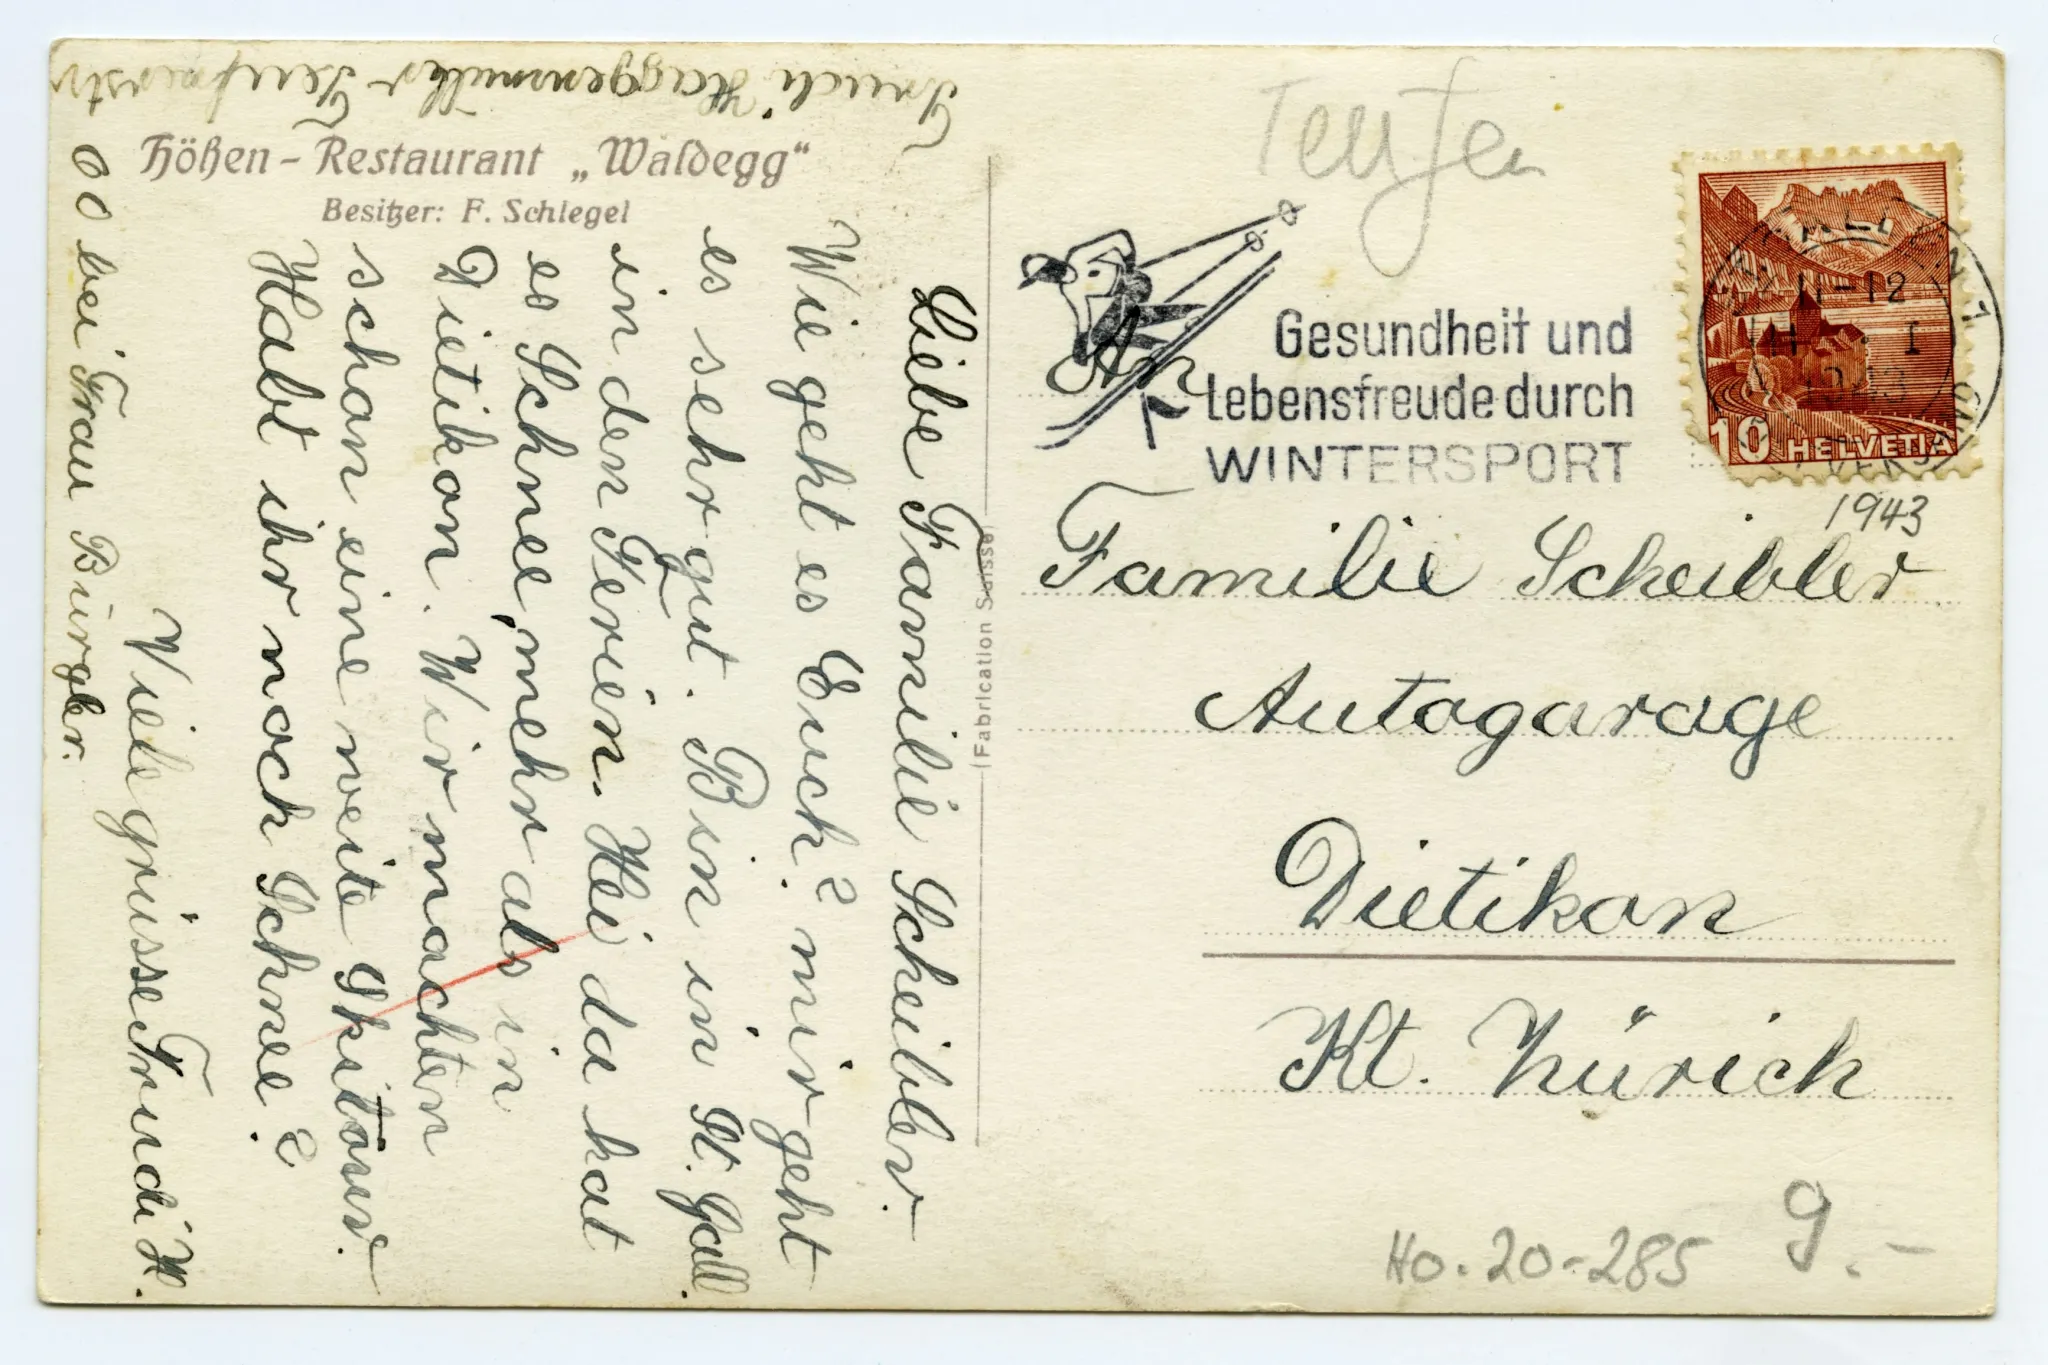 Höhen-Restaurant „Waldegg"
Besitzer: F. Schlegel
Liebe Familie Scheibler.
Wie geht es Euch? mir geht
es sehr gut. Bin in St. Gall.
in den Ferien. Hei da hat
es Schnee, mehr als in
Dietikon. Wir machten
schon eine weite Skitour.
Habt ihr noch Schnee?
Viele grüsse Trudi H.
Trudi Haggenmüller Teufnerstr
bei Frau Bürgler.
Fabrication Suisse
Teufen
Gesundheit und
Lebensfreude durch
WINTERSPORT
11-12
10 HELVETIA
1943
An
Familie Scheibler
Autogarage
Dietikon
Kt. Zürich
Ho. 20-285
9.-